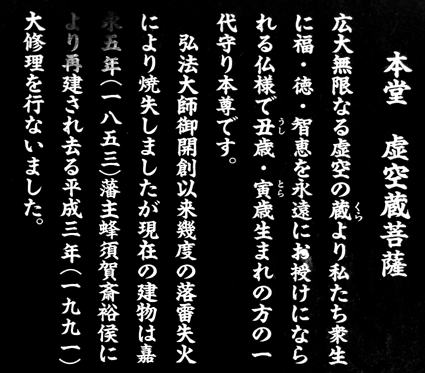 本堂　虚空蔵菩薩
広大無限なる虚空の蔵より私たち衆生
に福・徳・智恵を永遠にお授けになら
れる仏様で丑歳・寅歳生まれの方の一
代守り本尊です。
弘法大師御開創以来幾度の落雷失火
により焼失しましたが現在の建物は嘉
永五年（一八五三）藩主蜂須賀斎裕侯に
より再建され去る平成三年（一九九一）
大修理を行ないました。